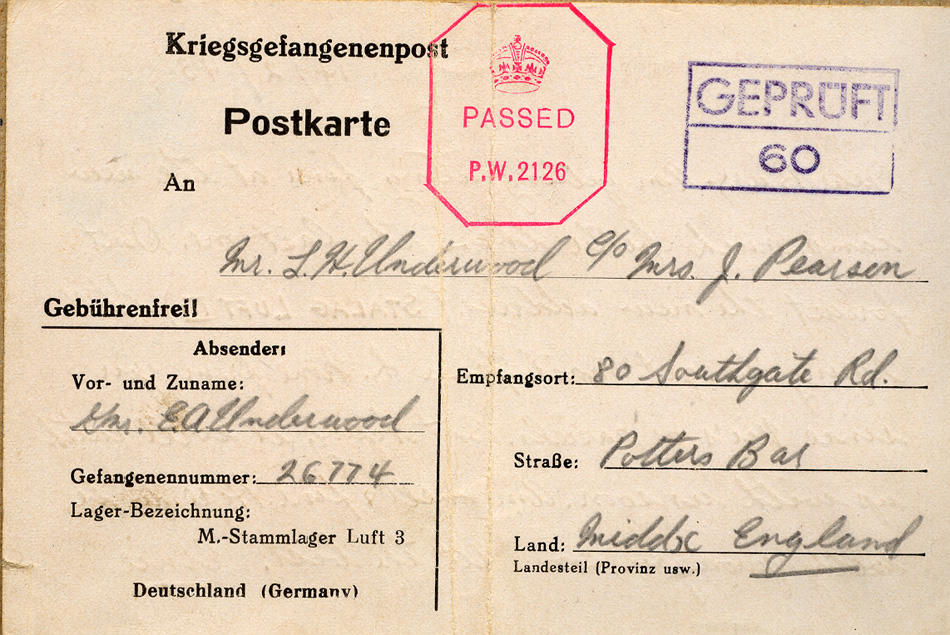 Kriegsgefangenenpost
Postkarte
PASSED
P.W. 2126
GEPRÜFT
60
An
Mr. L. H. Underwood c/o Mrs. J. Pearson
Gebührenfrei!
Absender:
Vor- und Zuname:
E A Underwood
Gefangenennummer: 26774
Lager-Bezeichnung:
M.-Stammlager Luft 3
Deutschland (Germany)
Empfangsort: 80 Southgate Rd.
Straße: Potters Bar
Land: Middx England
Landesteil (Provinz usw.)